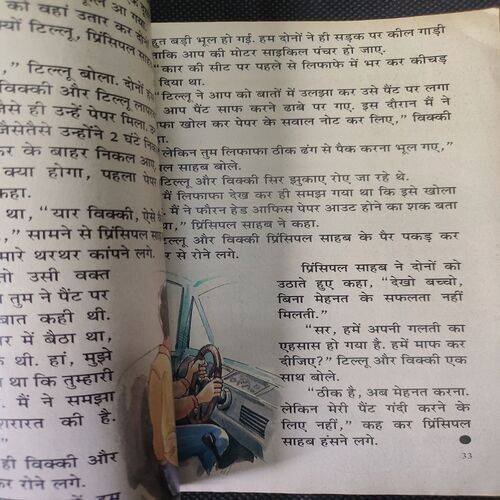 ल्ले आ गए
को वहां उतार कर दी
यों टिल्लू, प्रिंसिपल सा
,” टिल्लू बोला. दोनों ही
विक्की और टिल्लू ला
से ही उन्हें पेपर मिला.
जैसेतैसे उन्होंने 2 घंटे
कर के बाहर निकल आए
क्या होगा, पहला पे
कहा.
था, “यार विक्की, ऐसे
,” सामने से प्रिंसिपल स
मारे थरथर कांपने लगे.
तो उसी वक्त
तुम ने पैंट पर
बात कही थी.
र में बैठा था,
के थी. हां, मुझे
या था कि तुम्हारी
. मैं ने समझा
शरारत की है.
ही विक्की और
कर रोने लगे.
हुत बड़ी भूल हो गई. हम दोनों ने ही सड़क पर कील गाड़ी
ताकि आप की मोटर साइकिल पंचर हो जाए.
“कार की सीट पर पहले से लिफाफे में भर कर कीचड़
दिया था.
“टिल्लू ने आप को बातों में उलझा कर उसे पैंट पर लगा
आप पैंट साफ करने ढाबे पर गए. इस दौरान मैं ने
फा खोल कर पेपर के सवाल नोट कर लिए,” विक्की
लेकिन तुम लिफाफा ठीक ढंग से पैक करना भूल गए,”
ल साहब बोले.
टिल्लू और विक्की सिर झुकाए रोए जा रहे थे.
मैं लिफाफा देख कर ही समझ गया था कि इसे खोला
मैं ने फौरन हेड आफिस पेपर आउट होने का शक बता
था,” प्रिंसिपल साहब ने कहा.
टिल्लू और विक्की प्रिंसिपल साहब के पैर पकड़ कर
र से रोने लगे.
प्रिंसिपल साहब ने दोनों को
उठाते हुए कहा, “देखो बच्चो,
बिना मेहनत के सफलता नहीं
मिलती.”
“सर, हमें अपनी गलती का
एहसास हो गया है. हमें माफ कर
दीजिए?” टिल्लू और विक्की एक
साथ बोले.
“ठीक है, अब मेहनत करना.
लेकिन मेरी पैंट गंदी करने के
लिए नहीं,” कह कर प्रिंसिपल
साहब हंसने लगे.
33